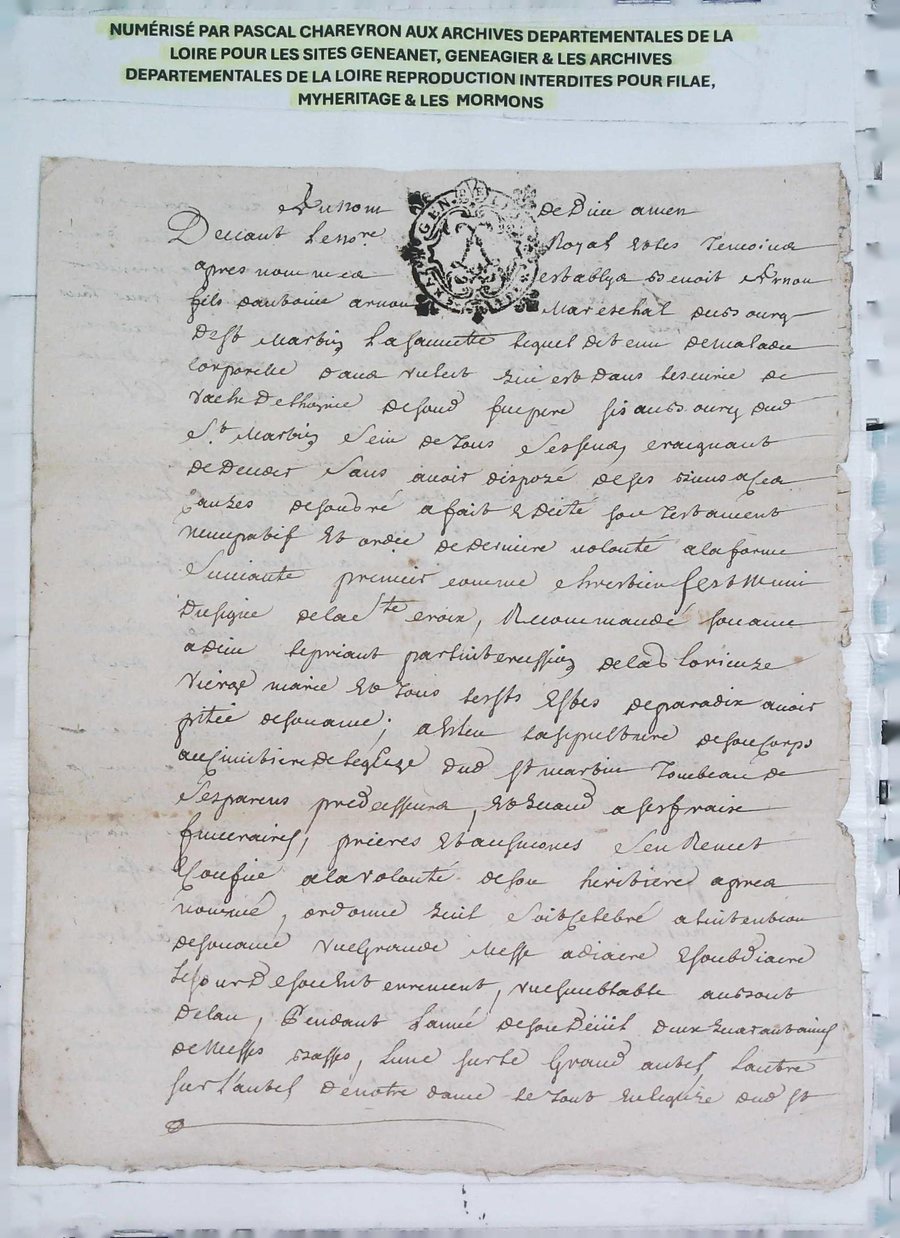 NUMÉRISÉ PAR PASCAL CHAREYRON AUX ARCHIVES DEPARTEMENTALES DE LA
LOIRE POUR LES SITES GENEANET, GENEAGIER & LES ARCHIVES
DEPARTEMENTALES DE LA LOIRE REPRODUCTION INTERDITES POUR FILAE,
MYHERITAGE & LES MORMONS
Au nom de Dieu amen
GEN DE
Devant le no.re Royal et les Temoins
apres nommes establys Benoit Arnou
fils dantoine arnou Mareschal du Bourg
de st Martin Lasauvette lequel detenu de maladie
corporelle dans un lict qui est dans lescurie de
vache de son pere sis au Bourg dud
St. Martin Sein de tous Ses sens craignant
de deceder Sans avoir disposé de ses biens a ces
causes de son gré a fait & dicté son Testament
nuncupatif et ord.e de derniere volonté a la forme
Suivante premier comme chrestien sest muni
du signe de la Ste croix, Recommandé son ame
a dieu le priant par lintercession de la Glorieuze
Vierge marie et tous les sts Estes de paradix avoir
pitié de son ame; a Esleu la sepulture de son Corps
au Cimitiere de leglize dud st martin Tombeau de
Ses parens predecesseurs, et quand a ses fraix
funeraires, prieres et ausmones Sen Remet
Confie a la volonté de son heritiere apres
nommé, ordonne quil Soit Celebré a lintention
de son ame une Grande Messe a diacre & soubdiacre
le jour de son enterrement, une semblable au bout
de lan, Pendant lanné de son Deüil deux quarantaines
de Messes basses, lune sur le Grand autel lautre
sur l'autel de notre dame le tout en leglize dud st